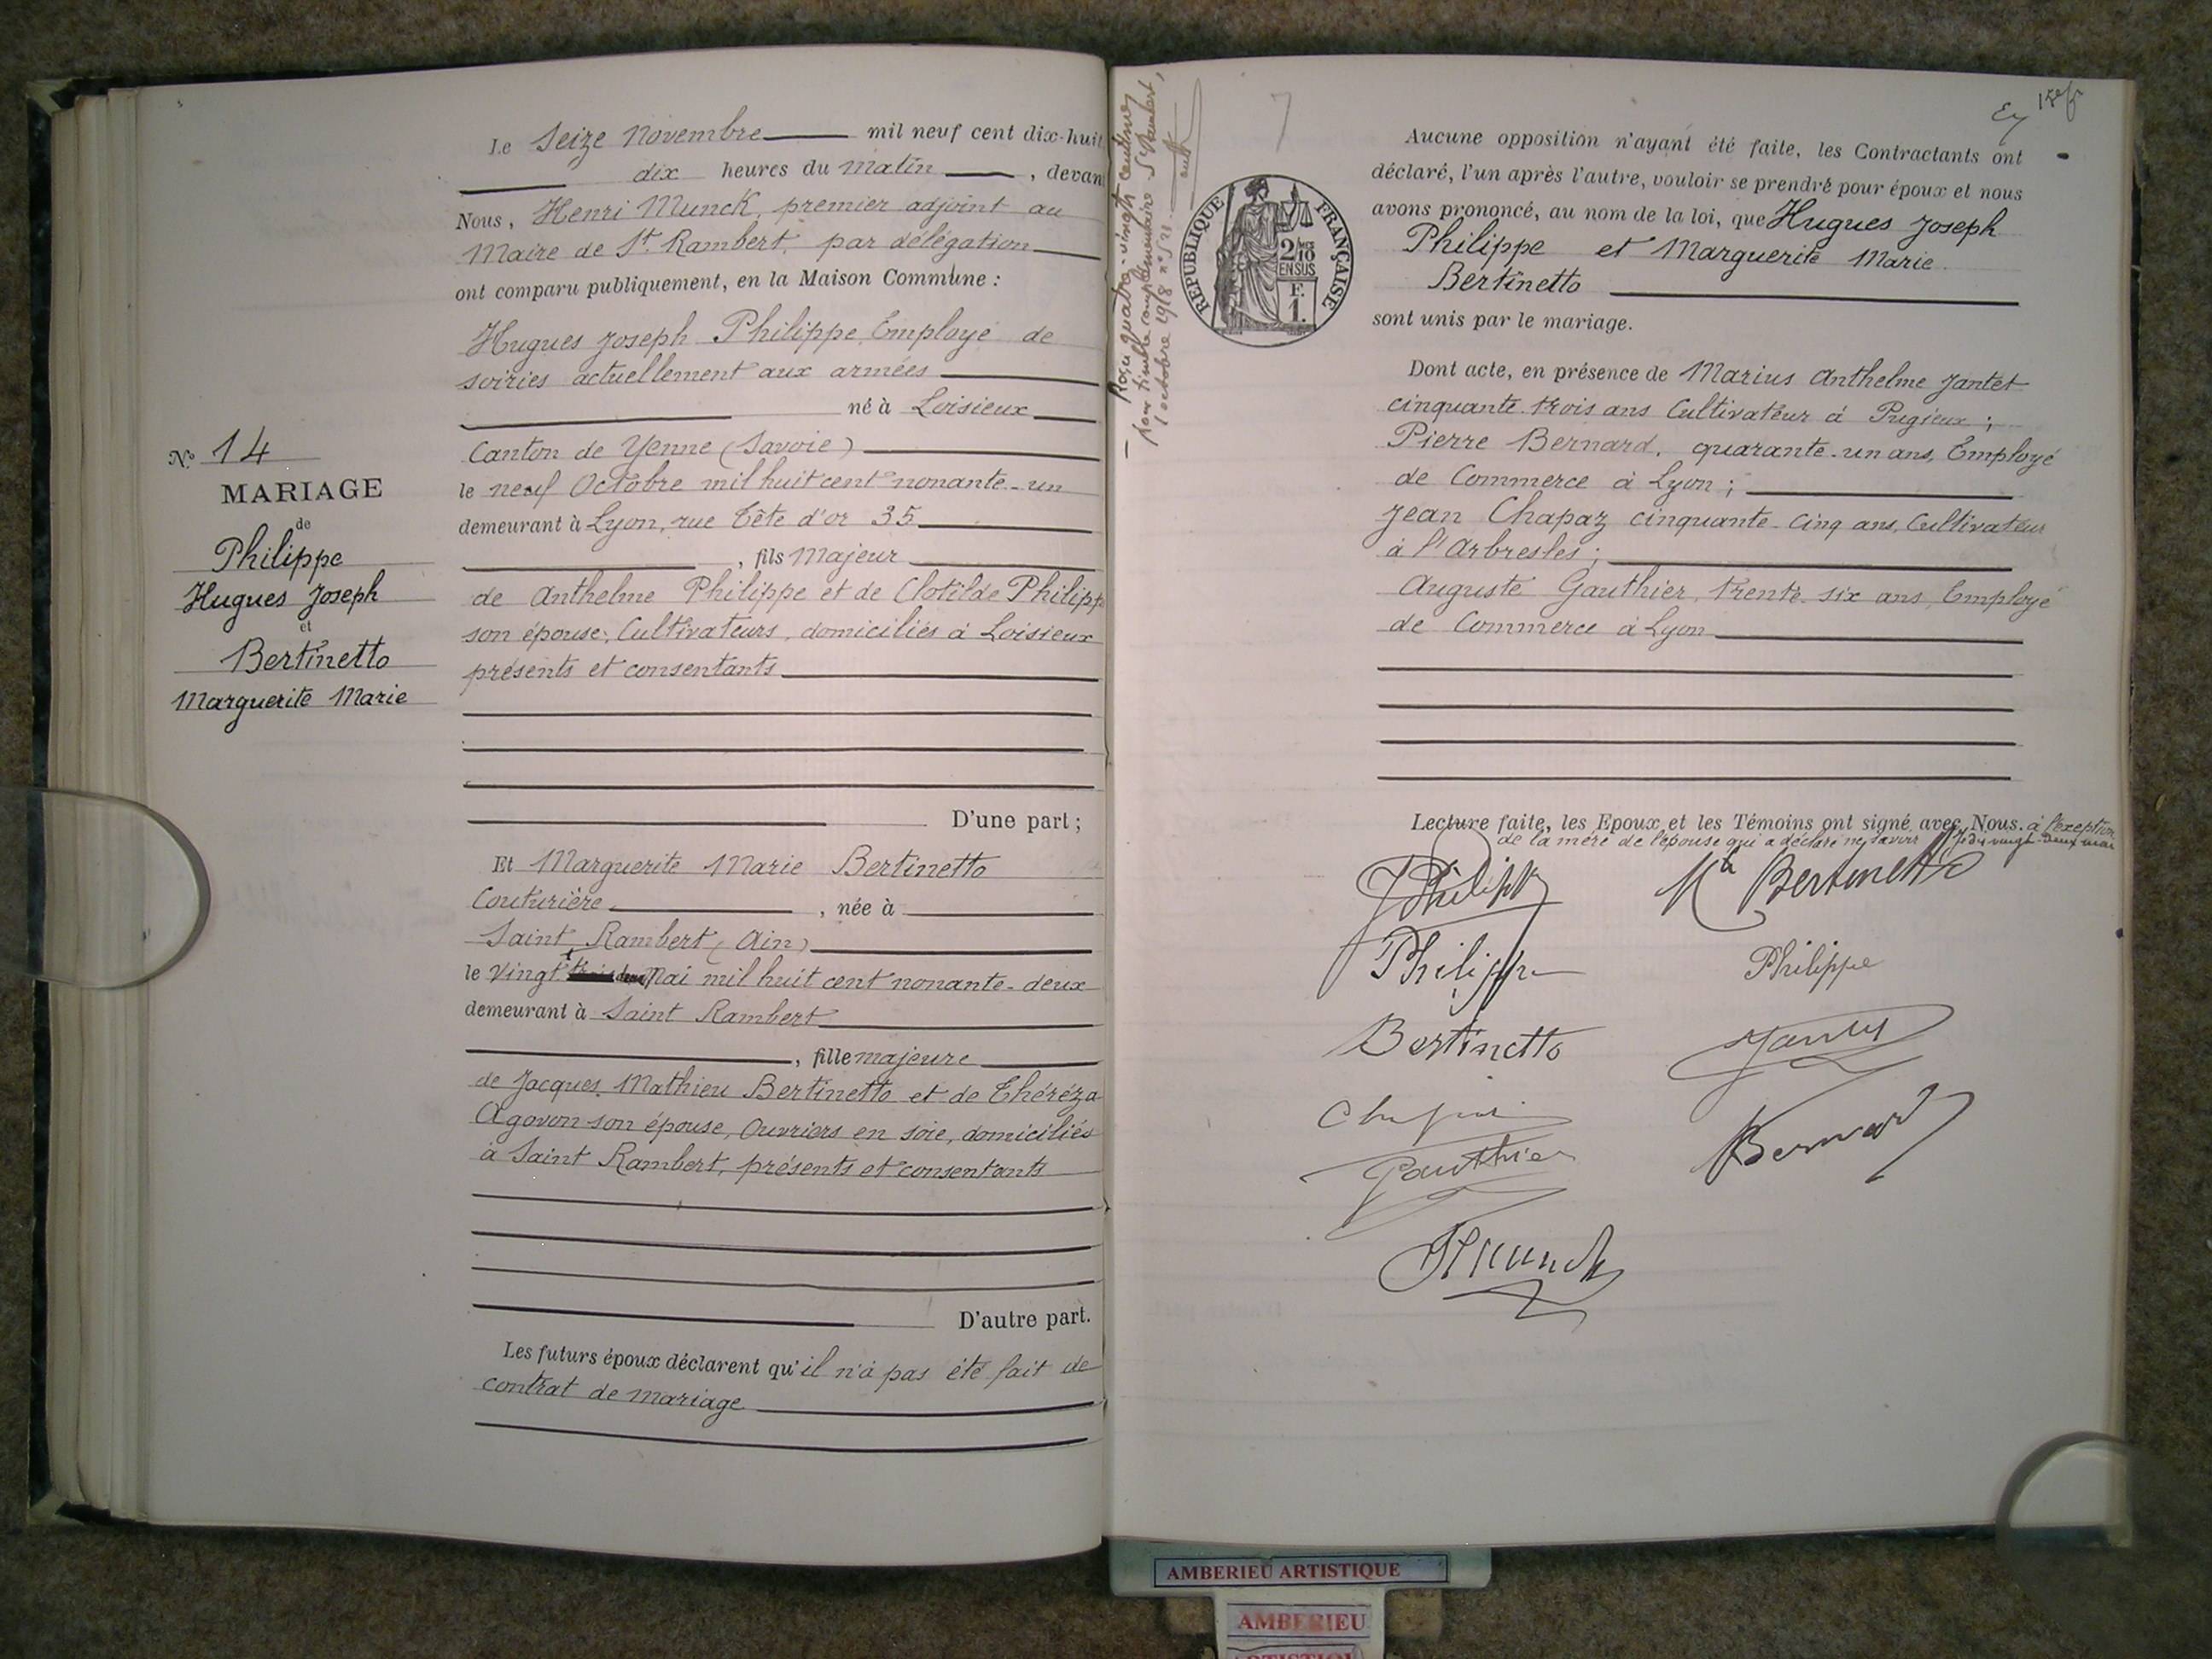 Le Seize Novembre mil neuf cent dix-huit
dix heures du matin, devant
Nous, Henri Munck, premier adjoint au
Maire de St. Rambert, par délégation
ont comparu publiquement, en la Maison Commune :
Hugues Joseph Philippe, Employé de
soiries actuellement aux armées
né à Loisieux
Canton de Yenne (Savoie)
le neuf Octobre mil huit cent nonante-un
demeurant à Lyon, rue Tête d'or 35
, fils Majeur
de Anthelme Philippe et de Clotilde Philippe
son épouse, Cultivateurs, domiciliés à Loisieux
présents et consentants
D'une part ;
Et Marguerite Marie Bertinetto
Couturière, née à
Saint Rambert (Ain)
le Vingt Mai mil huit cent nonante-deux
demeurant à Saint Rambert
, fille majeure
de Jacques Mathieu Bertinetto et de Théréza
Agovon son épouse, Ouvriers en soie, domiciliés
à Saint Rambert, présents et consentants
D'autre part.
Les futurs époux déclarent qu'il n'à pas été fait de
contrat de mariage
N° 14
MARIAGE
de
Philippe
Hugues Joseph
et
Bertinetto
Marguerite Marie
quatre-vingts centimes
pour timbre complémentaire St Rambert,
octobre 1918
7
RÉPUBLIQUE FRANÇAISE
2/10
EN SUS
F.
1.
Aucune opposition n'ayant été faite, les Contractants ont
déclaré, l'un après l'autre, vouloir se prendre pour époux et nous
avons prononcé, au nom de la loi, que Hugues Joseph
Philippe et Marguerite Marie
Bertinetto
sont unis par le mariage.
Dont acte, en présence de Marius Anthelme Jantet
cinquante-trois ans Cultivateur à Pugieux ;
Pierre Bernard, quarante-un ans, Employé
de Commerce à Lyon ;
Jean Chapaz cinquante-cinq ans, Cultivateur
à l'Arbresles ;
Auguste Gauthier, trente-six ans, Employé
de Commerce à Lyon
Lecture faite, les Epoux et les Témoins ont signé avec Nous. à l'exeption
de la mère de l'épouse qui a déclaré ne savoir vingt-deux mai
J Philippe
Bertinetto
Philippe
Philippe
Bertinetto
Jantet
Gauthier
Bernard
H Munck
AMBERIEU ARTISTIQUE
AMBERIEU
ARTISTIQU